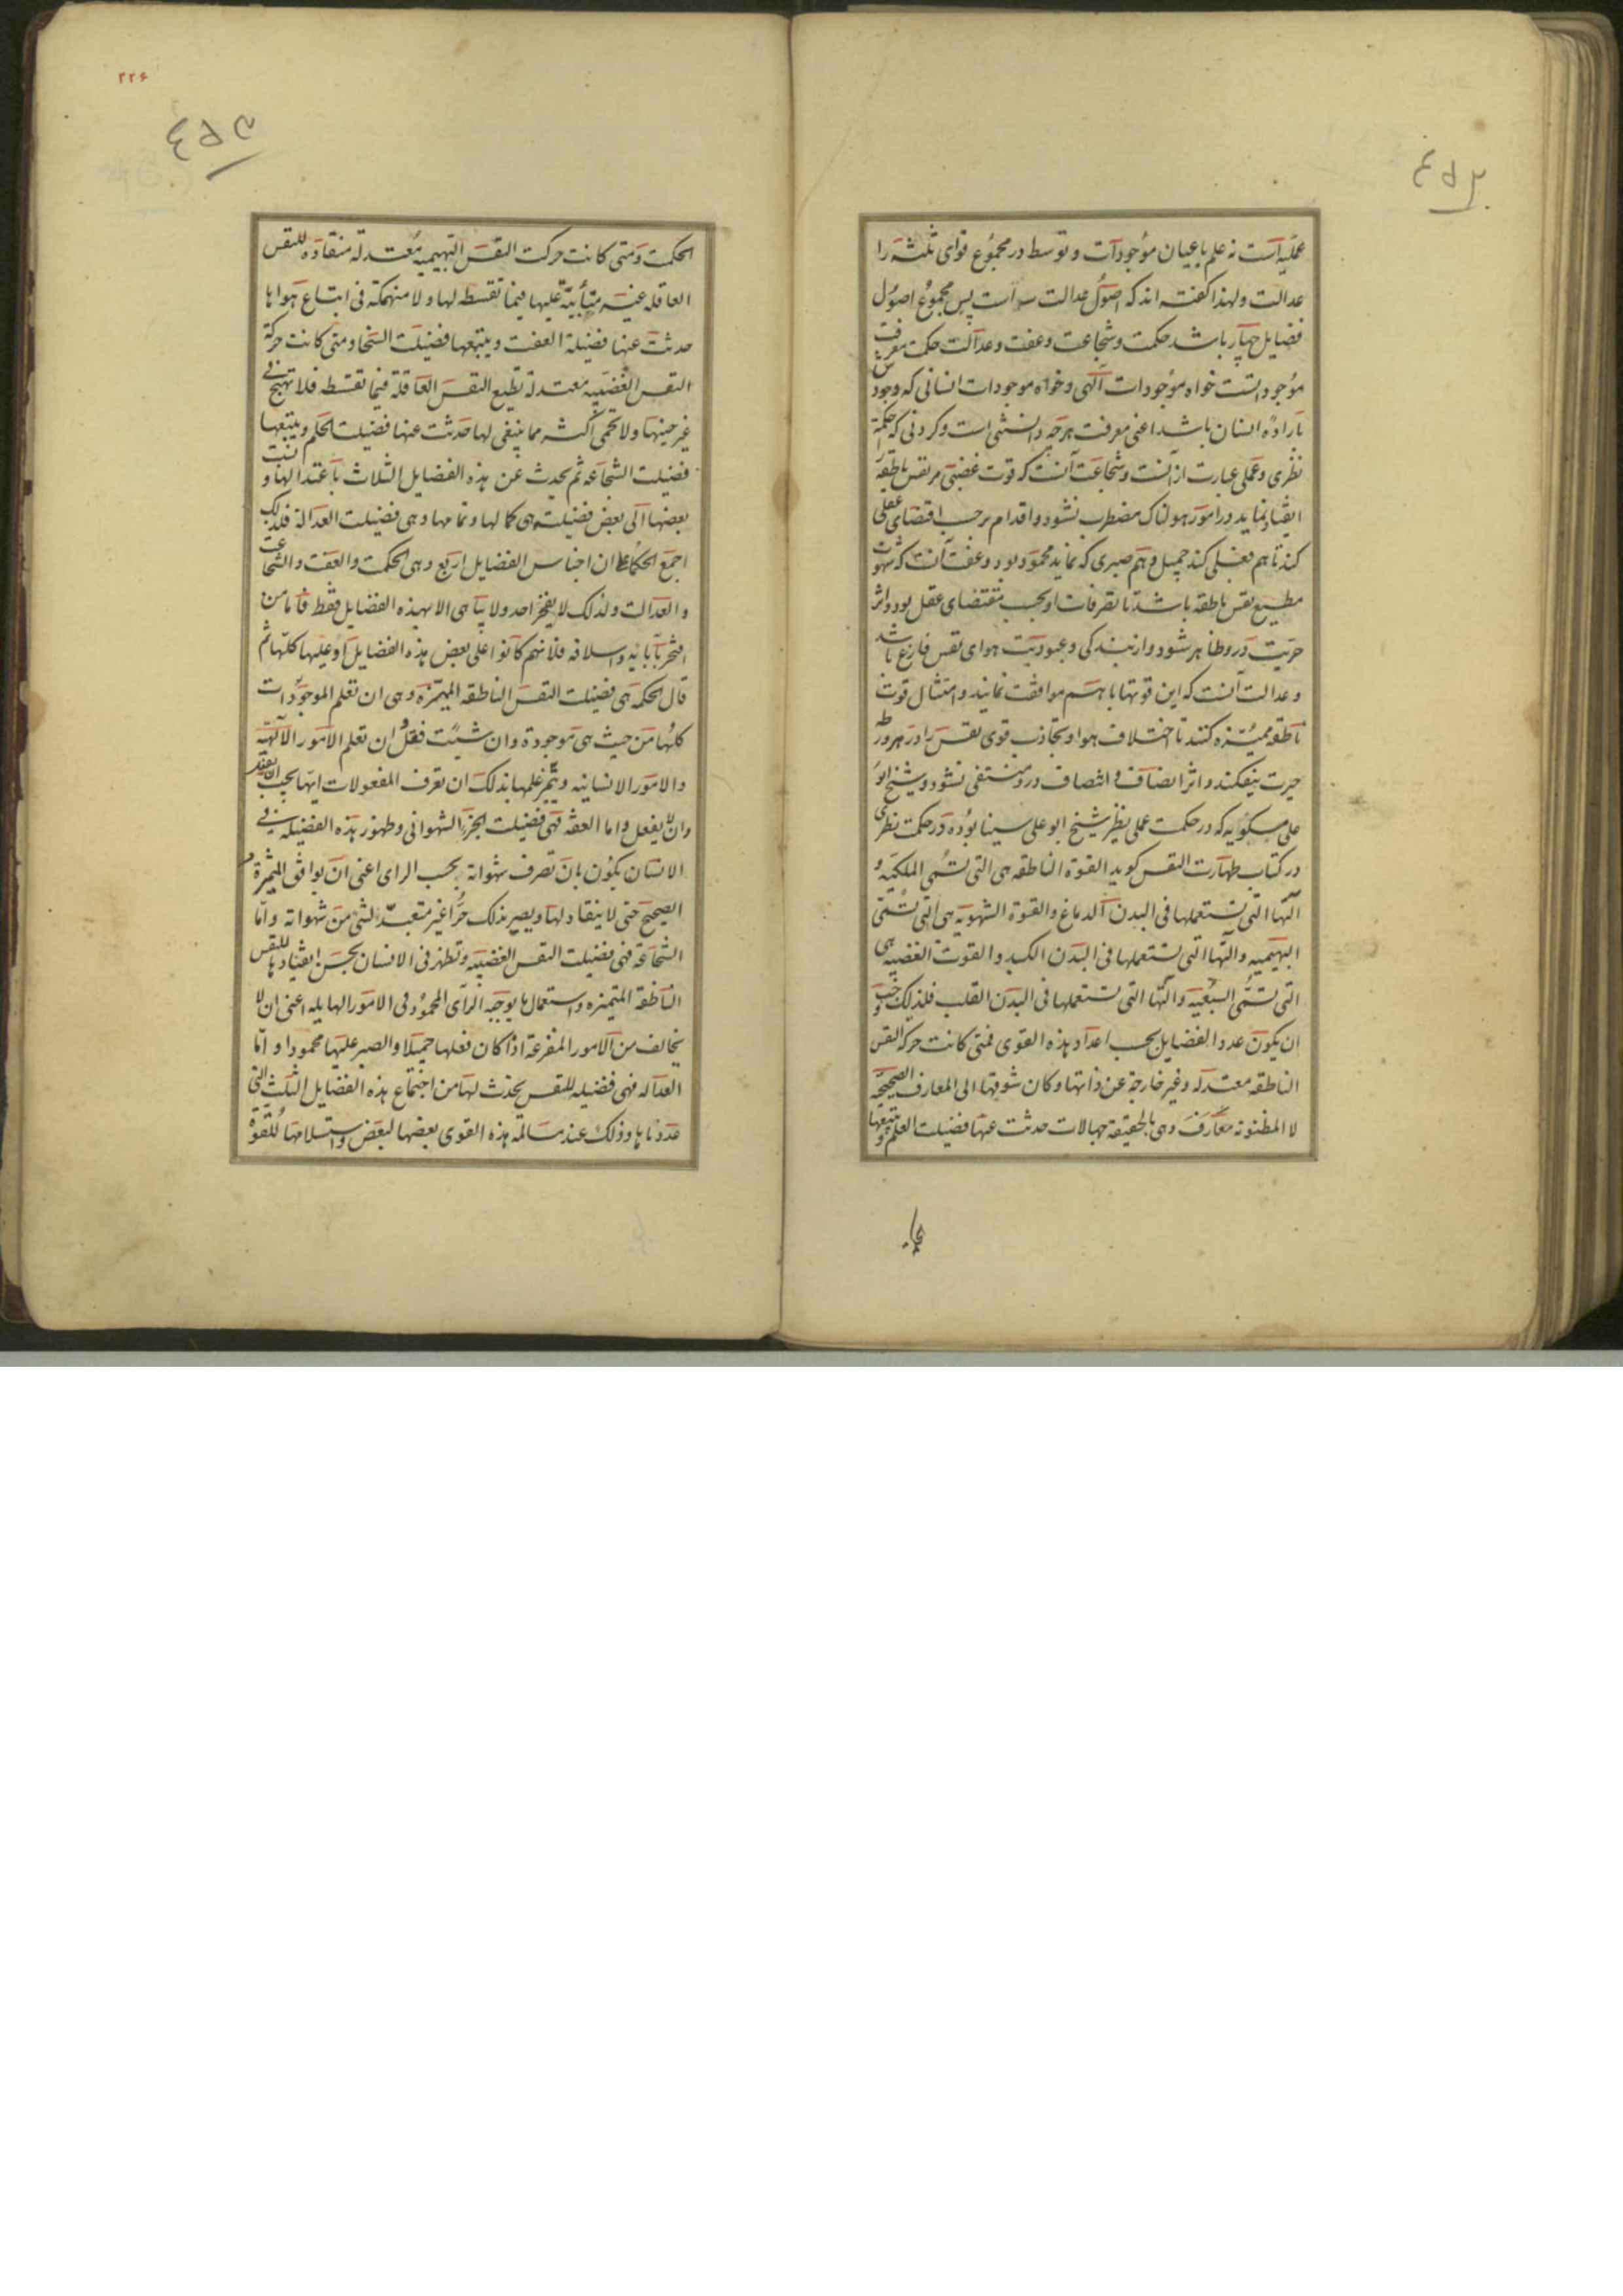 عملیه است نه علم باعیان موجودات و توسط در مجموع قوای ثلثه را
عدالت و لهذا گفته اند که اصول عدالت سه است پس مجموع اصول
فضایل چهار باشد حکمت و شجاعت و عفت و عدالت حکمت معرفت
موجودیست خواه موجودات الهی و خواه موجودات انسانی که وجودش
باراده انسان باشد اعنی معرفت هرچه دانستنی است و کردنی که حکمة
نظری و عملی عبارت از آنست و شجاعت آنست که قوت غضبی مر نفس ناطقه را
انقیاد نماید و در امور هولناک مضطرب نشود و اقدام برحسب اقتضای عقلی
کند تا هم فعلی کند جمیل و هم صبری که نماید محمود بود و عفت آنست که شهوت
مطیع نفس ناطقه باشد تا تصرفات او بحسب مقتضای عقل بود و اثر
حریت در و ظاهر شود و از بندگی و عبودیت هوای نفس فارغ باشد
و عدالت آنست که این قوتها با هم موافقت نمایند و امتثال قوت
ناطقه ممیزه کنند تا اختلاف هوا و تجاذب قوی نفس را در هر ورطه
حیرت نیفکند و اثر انصاف و انتصاف درو منتفی نشود و شیخ ابو
علی مسکویه که در حکمت عملی نظر شیخ ابو علی سینا بوده در حکمت نظری
در کتاب طهارت النفس گوید القوة الناطقه هی التی تسمی الملکیه و
آلتها التی تستعملها فی البدن الدماغ والقوة الشهویه هی التی تسمی
البهیمیه وآلتها التی تستعملها فی البدن الکبد والقوت الغضبیه هی
التی تسمی السبعیه وآلتها التی تستعملها فی البدن القلب فلذلک وجب
ان یکون عدد الفضایل بحسب اعداد هذه القوی فمتی کانت حرکة النفس
الناطقه معتدله وغیر خارجة عن ذاتها وکان شوقها الی المعارف الصحیحه
لا المظنونه معارف وهی بالحقیقة جهالات حدثت عنها فضیلت العلم وتتبعها
۲۲۶
الحکمت ومتی کانت حرکت النفس البهیمیه معتدلة منقادة للنفس
العاقله غیر متأبیة علیها فیما تقسطه لها ولا منهمکة فی اتباع هواها
حدثت عنها فضیلة العفت ویتبعها فضیلت السخا ومتی کانت حرکة
النفس الغضبیه معتدلة تطیع النفس العاقلة فیما تقسطه فلا تهیج فی
غیر حینها ولا تحمی اکثر مما ینبغی لها حدثت عنها فضیلت الحلم ویتبعها
فضیلت الشجاعه ثم یحدث عن هذه الفضایل الثلاث باعتدالها و نسبت
بعضها الی بعض فضیلت هی کمالها وتمامها وهی فضیلت العدالة فلذلک
اجمع الحکماء ان اجناس الفضایل اربع وهی الحکمت والعفت والشجاعت
والعدالت ولذلک لا یفخر احد ولا یباهی الا بهذه الفضایل فقط فاما من
افتخر بآبائه واسلافه فلانهم کانوا علی بعض هذه الفضایل او علیها کلها ثم
قال الحکمه هی فضیلت النفس الناطقه الممیزه وهی ان تعلم الموجودات
کلها من حیث هی موجودة وان شئت فقل ان تعلم الامور الالهیه
والامور الانسانیه ویثمر علمها بذلک ان تعرف المفعولات ایها یجب ان یفعل
وان لا یفعل واما العفه فهی فضیلت الجزء الشهوانی وظهور هذه الفضیله فی
الانسان یکون بان تصرف شهواته بحسب الرای اعنی ان یوافق
الصحیح حتی لا ینقاد لها ویصیر بذلک حرا غیر متعبد لشئ من شهواته واما
الشجاعة فهی فضیلت النفس الغضبیه وتظهر فی الانسان بحسن انقیادها للنفس
الناطقة المتمیزه واستعمال ما یوجبه الرأی المحمود فی الامور الهایله اعنی ان لا
یخاف من الامور المفزعة اذا کان فعلها جمیلا والصبر علیها محمودا واما
العداله فهی فضیله للنفس یحدث لها من اجتماع هذه الفضایل الثلث التی
عددناها وذلک عند مسالمة هذه القوی بعضها لبعض واستسلامها للقوة